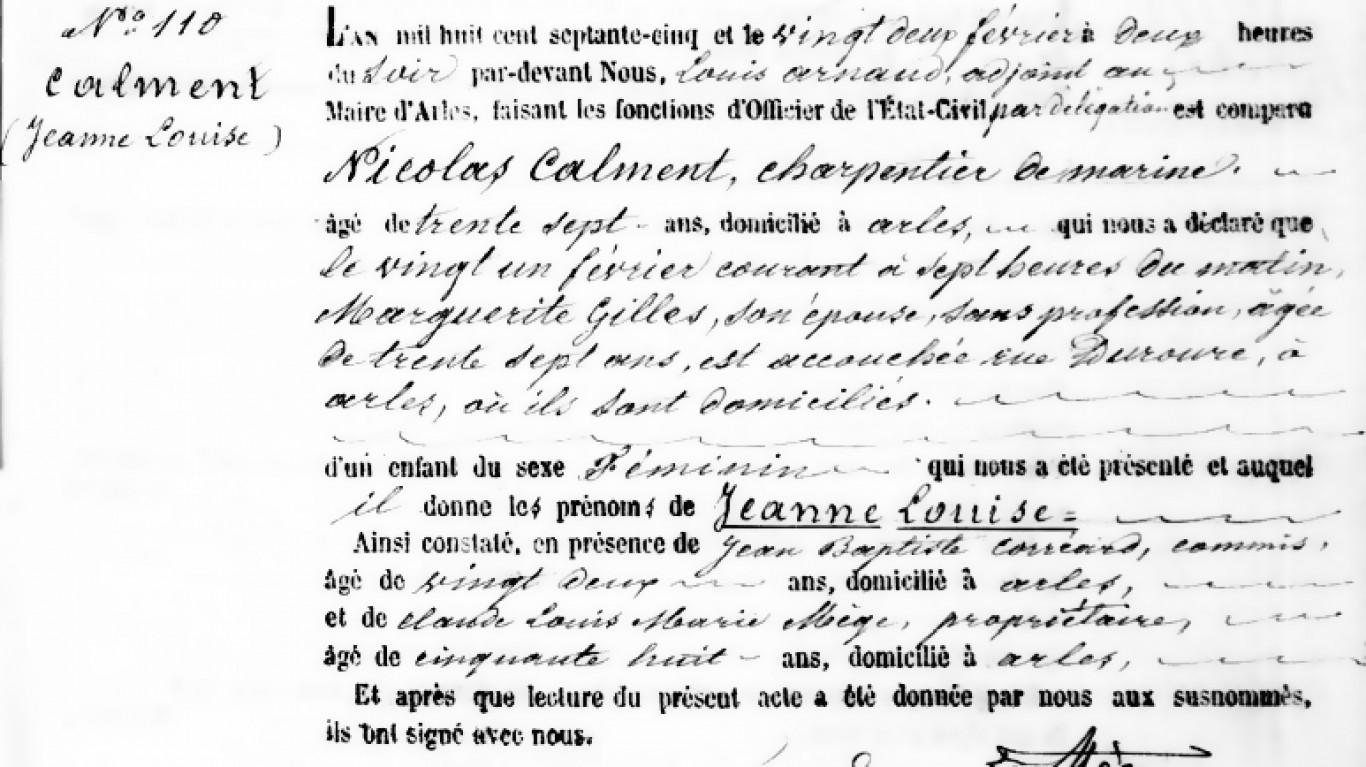 N.º 110
Calment
(Jeanne Louise)
L'AN mil huit cent septante-cinq et le vingt deux février à deux heures
du soir par-devant Nous, Louis arnaud, adjoint au
Maire d'Arles, faisant les fonctions d'Officier de l'État-Civil par délégation est comparu
Nicolas Calment, charpentier de marine.
âgé de trente sept ans, domicilié à arles, qui nous a déclaré que
le vingt un février courant à sept heures du matin,
Marguerite Gilles, son épouse, sans profession, âgée
de trente sept ans, est accouchée rue Duroure, à
arles, où ils sont domiciliés.
d'un enfant du sexe Féminin qui nous a été présenté et auquel
il donne les prénoms de Jeanne Louise=
Ainsi constaté, en présence de Jean Baptiste Corréard, commis,
âgé de vingt deux ans, domicilié à arles,
et de claude Louis Marie Mège, propriétaire,
âgé de cinquante huit ans, domicilié à arles,
Et après que lecture du présent acte a été donnée par nous aux susnommés,
ils ont signé avec nous.